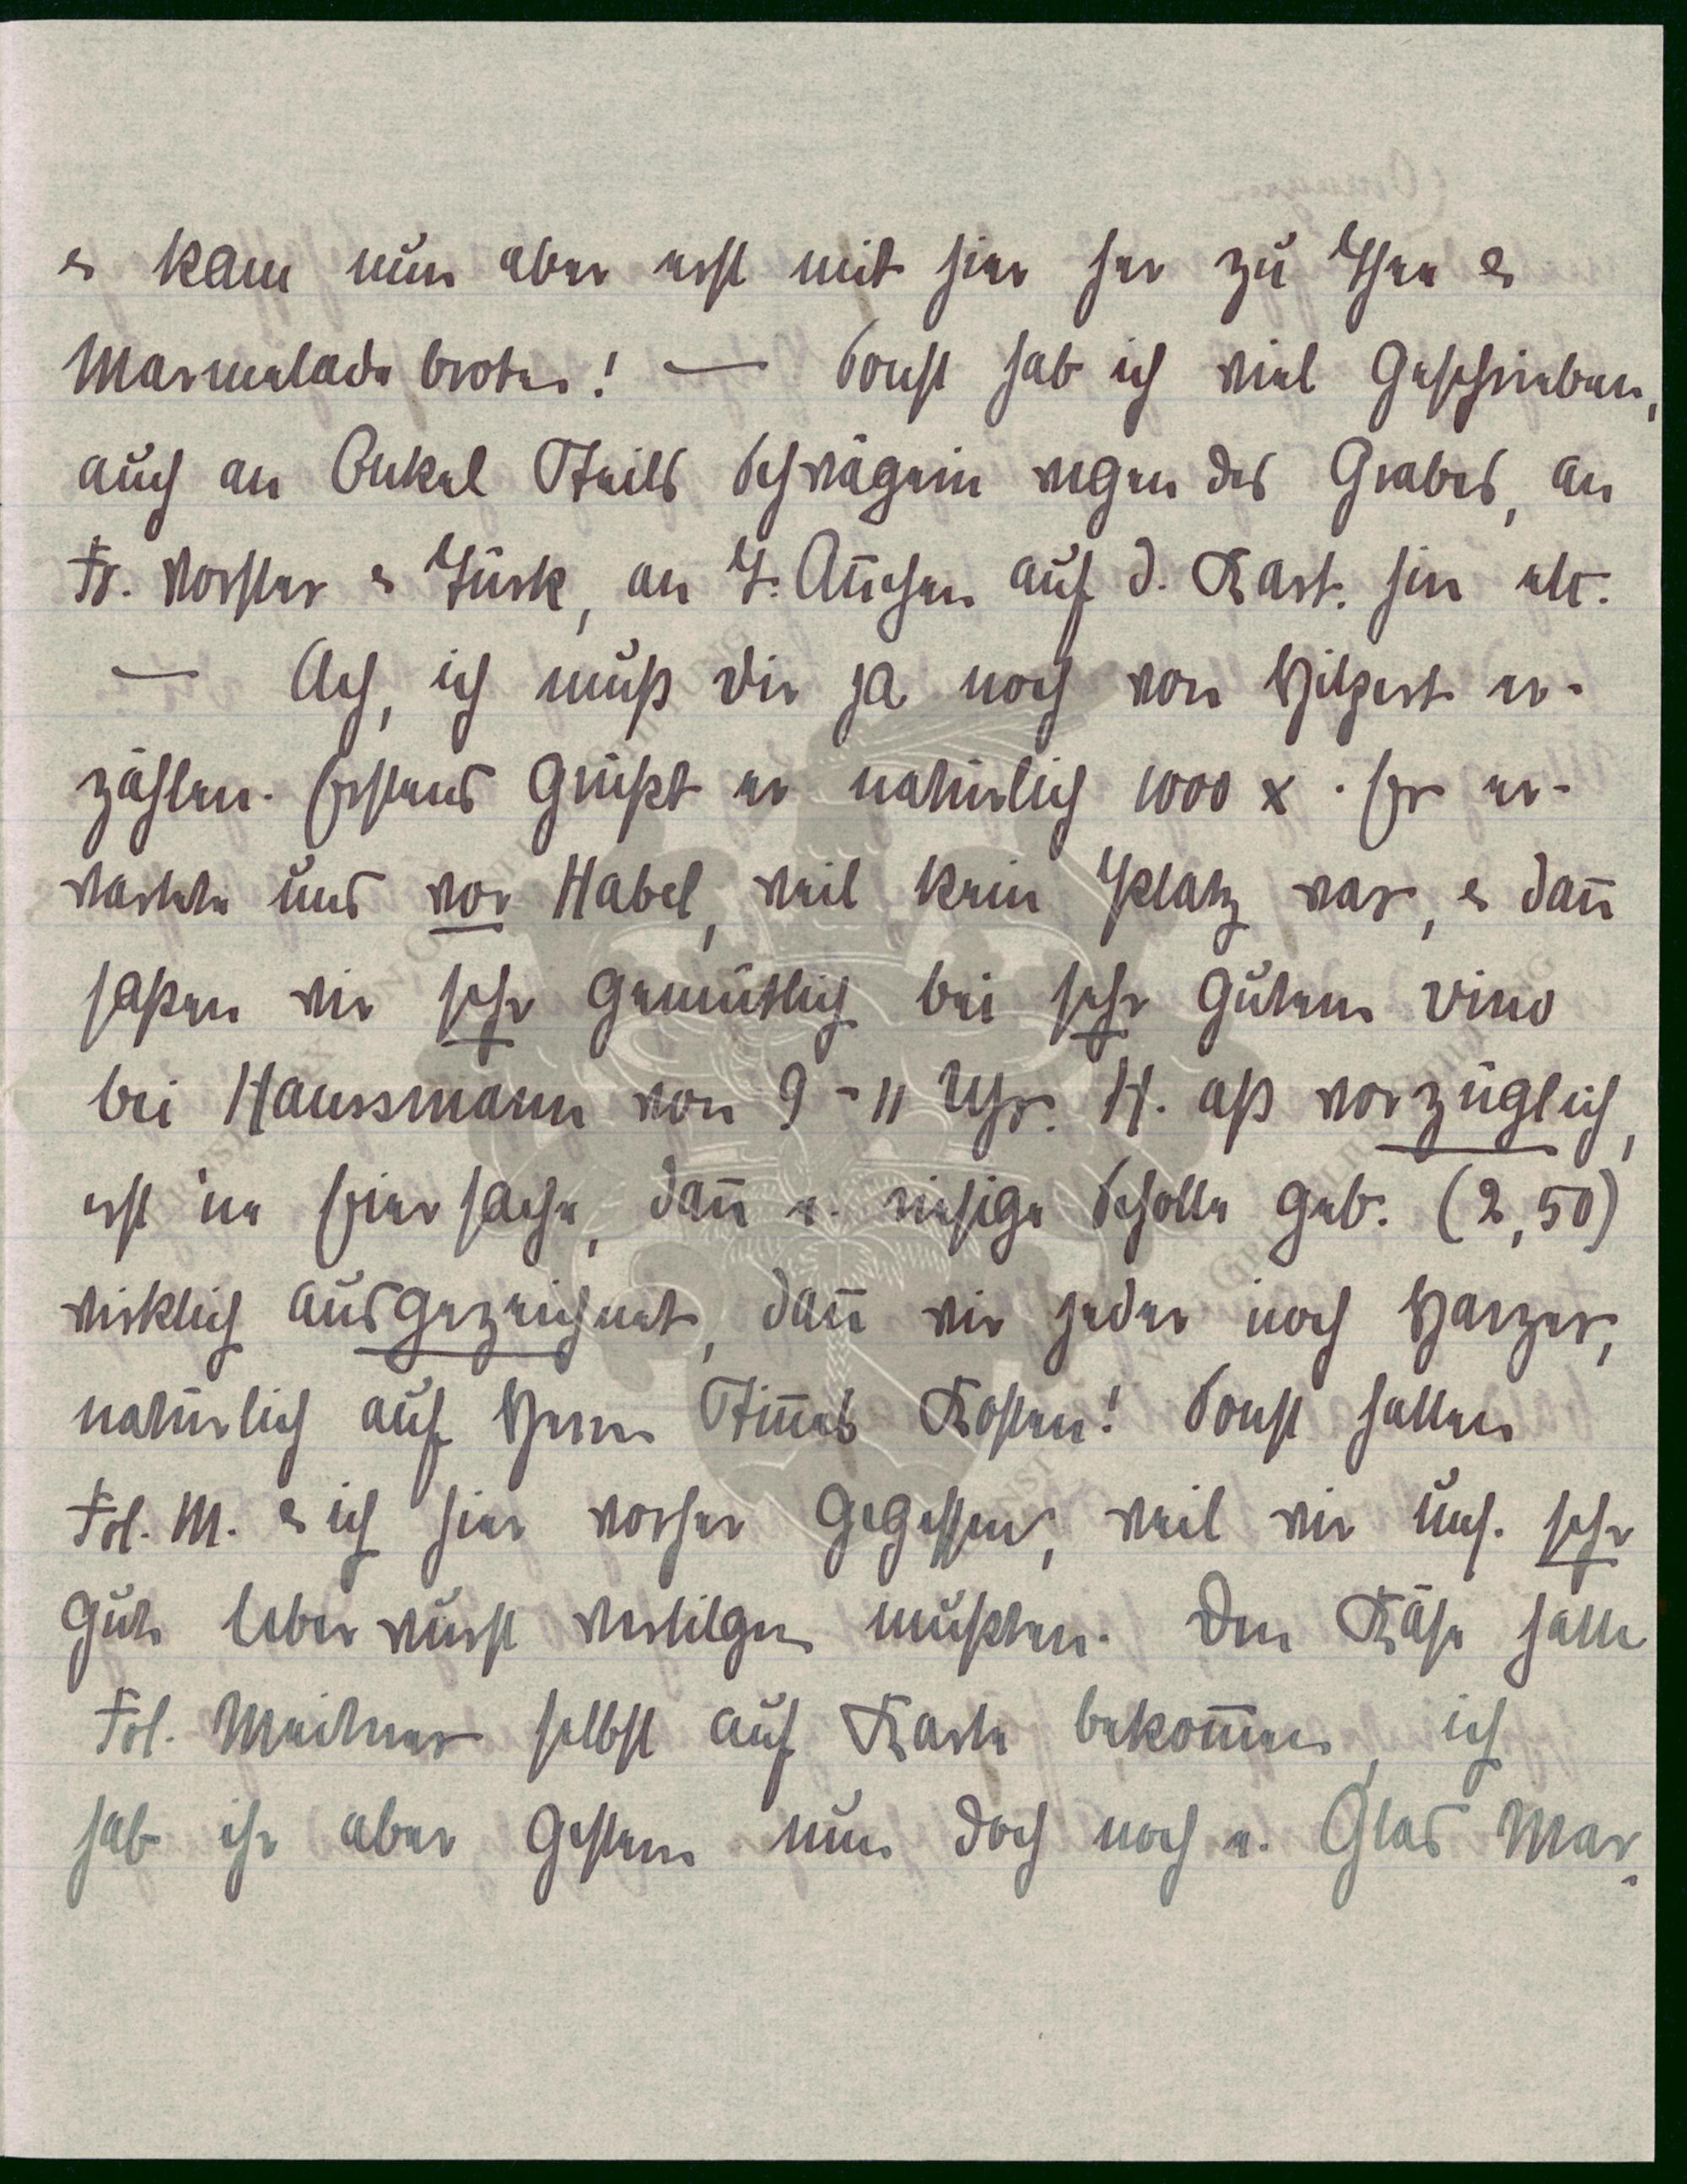 & kam nun aber erst mit hier her zu Thee &
Marmeladebroten! — Sonst hab ich viel geschrieben,
auch an Onkel Theils Schwägerin wegen des Grabes, an
Fr. Vorster & Türk, an T. Ännchen auf d. Kart. hin etc.
— Ach, ich muß Dir ja noch von Hilgert er-
zählen. Erstens grüßt er natürlich 1000 x. Er er-
wartete uns vor Habel, weil kein Platz war, & dañ
saßen wir sehr gemütlich bei sehr gutem Vino
bei Haussmann von 9-11 Uhr. H. aß vorzüglich,
erst 'ne Eiersache, dañ e. riesige Scholle geb. (2,50)
wirklich ausgezeichnet, dañ wir jeder noch Harzer,
natürlich auf Herrn Stiñes Kosten! Sonst hatten
Frl. M. & ich hier vorher gegessen, weil wir uns. sehr
gute Leberwurst vertilgen mußten. Den Käse hatte
Frl. Meitner selbst auf Karte bekom̄en, ich
hab ihr aber gestern nun doch noch e. Glas Mar-